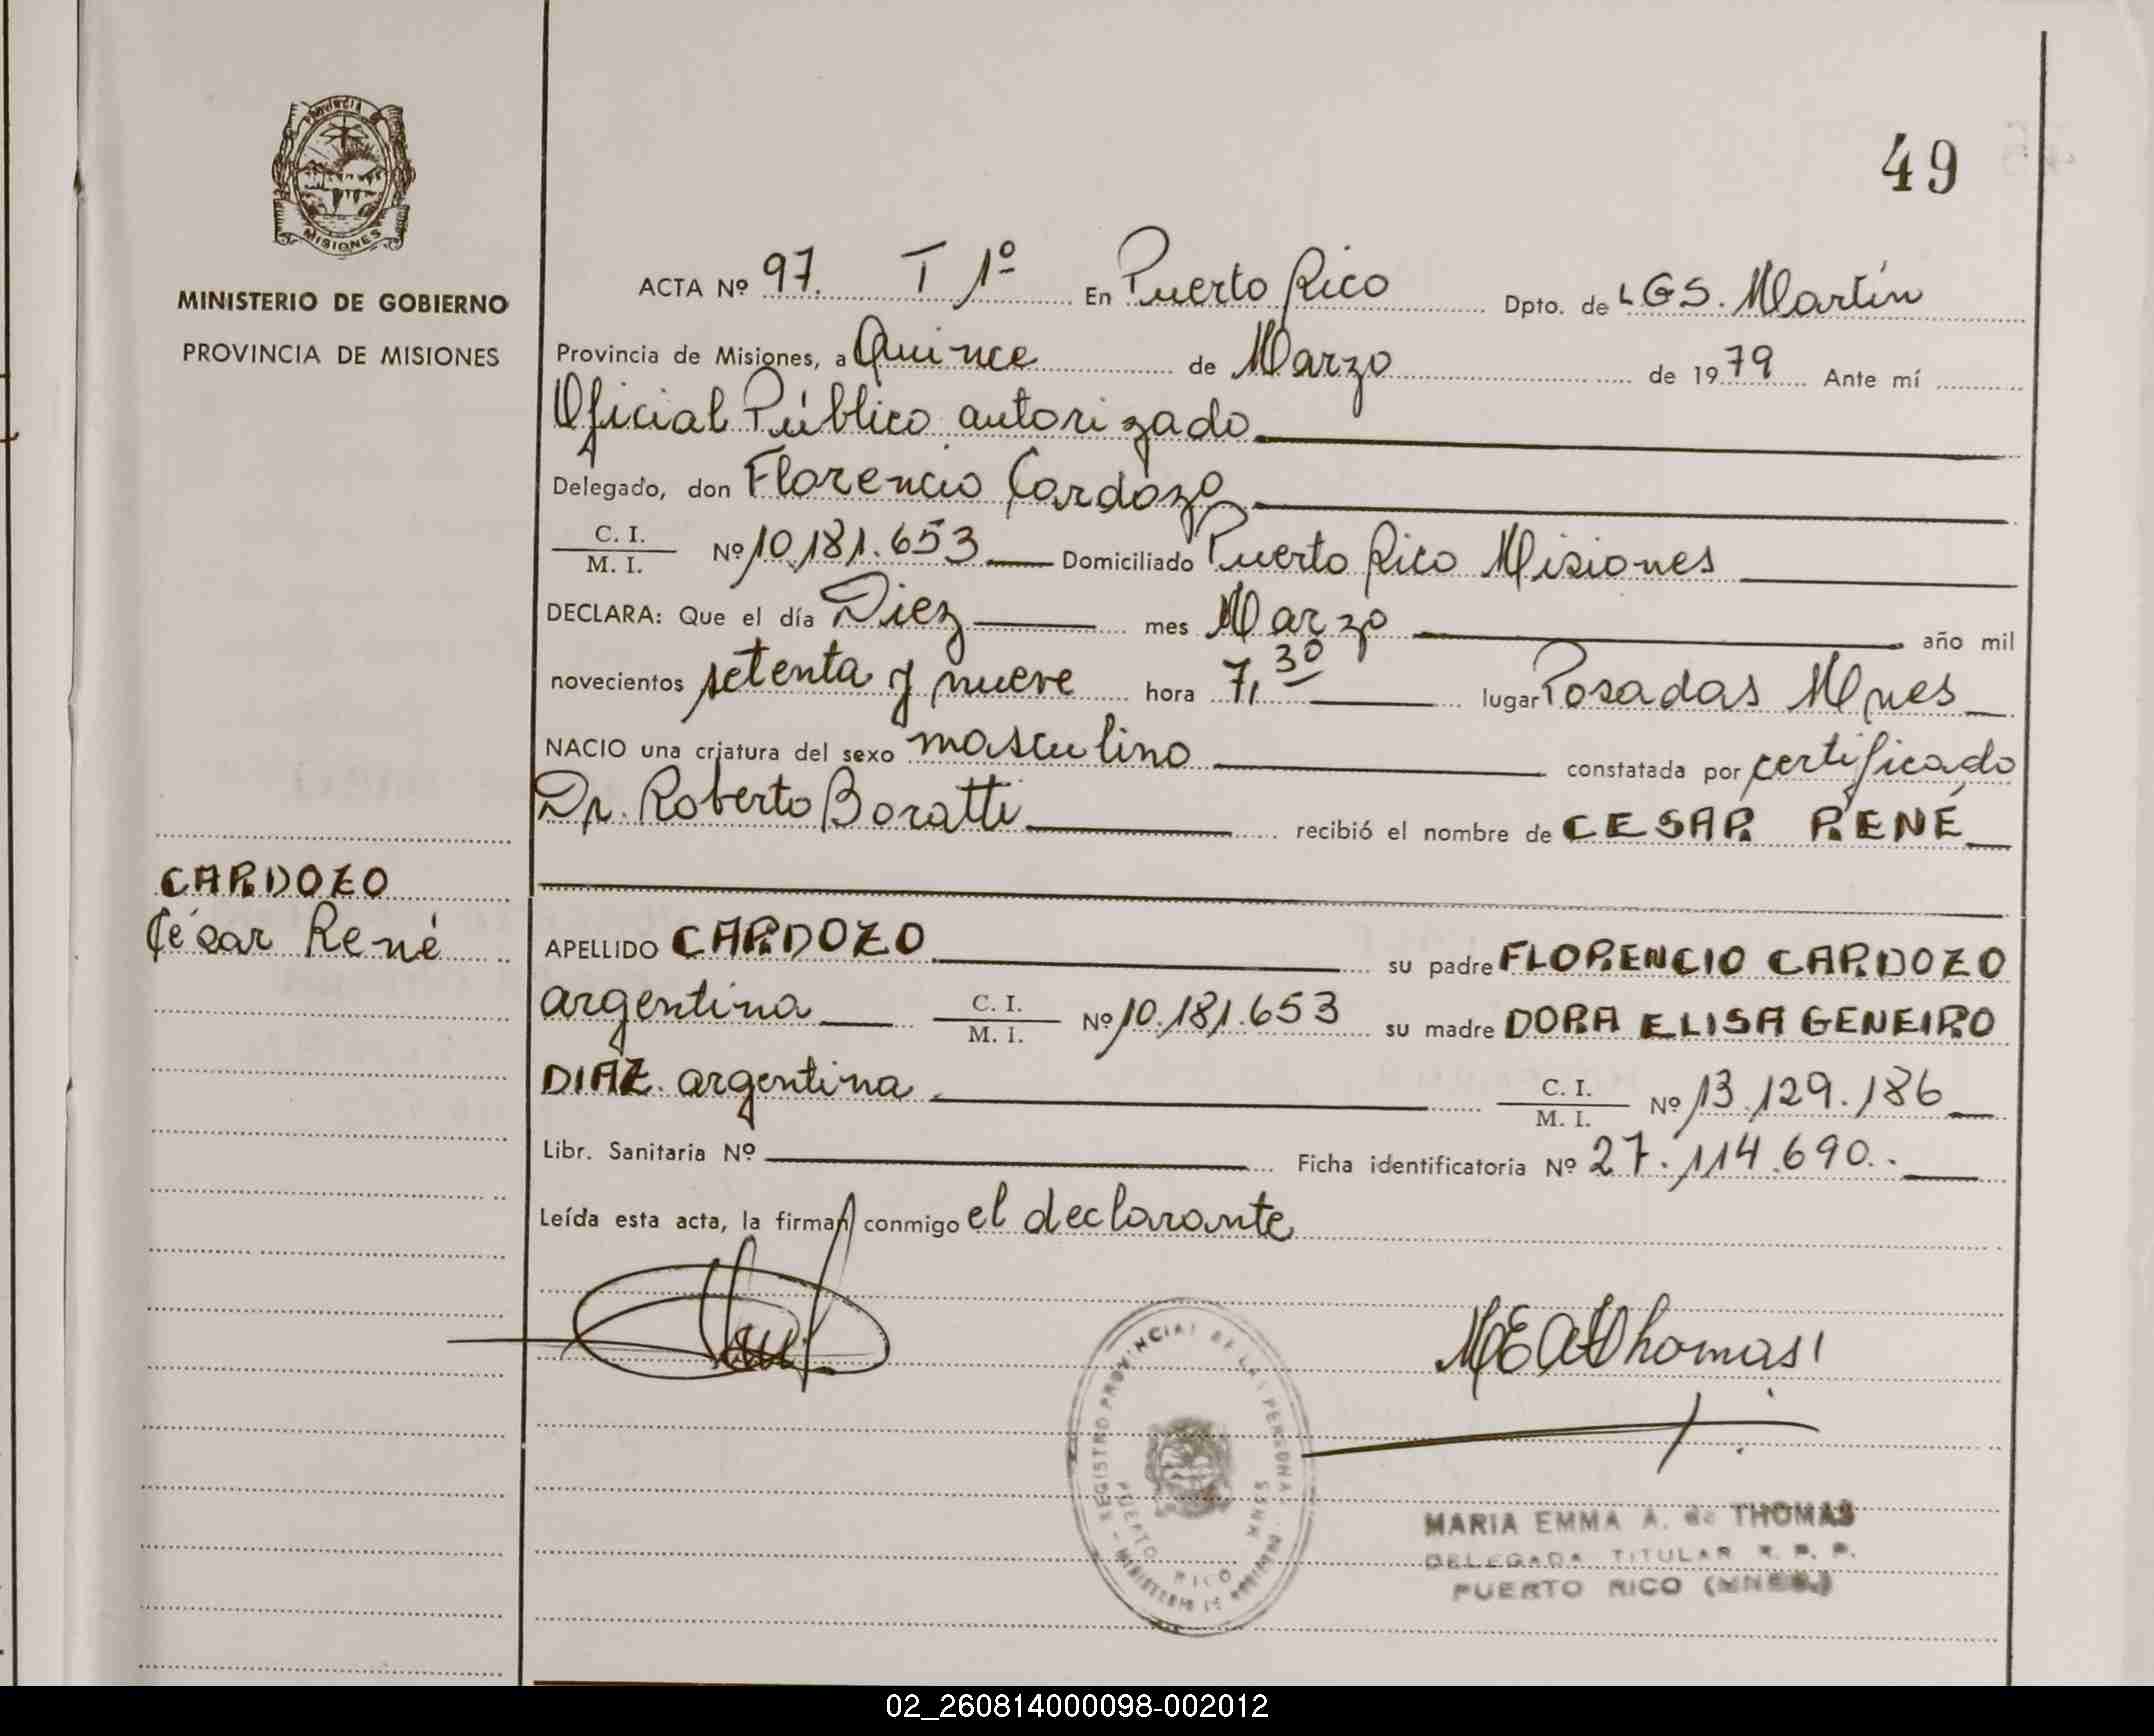 PROVINCIA
MISIONES
MINISTERIO DE GOBIERNO
PROVINCIA DE MISIONES
CARDOZO
César René
49
ACTA Nº 97. T 1º En Puerto Rico Dpto. de L.G.S. Martín
Provincia de Misiones, a Quince de Marzo de 1979 Ante mí
Oficial Público autorizado
Delegado, don Florencio Cardozo
C. I.
M. I. Nº 10.181.653 Domiciliado Puerto Rico Misiones
DECLARA: Que el día Diez mes Marzo año mil
novecientos setenta y nueve hora 7,30 lugar Posadas Mnes
NACIO una criatura del sexo masculino constatada por certificado
Dr. Roberto Boratti recibió el nombre de CESAR RENÉ
APELLIDO CARDOZO su padre FLORENCIO CARDOZO
argentina C. I.
M. I. Nº 10.181.653 su madre DORA ELISA GENEIRO
DIAZ argentina C. I.
M. I. Nº 13.129.186
Libr. Sanitaria Nº Ficha identificatoria Nº 27.114.690.
Leída esta acta, la firman conmigo el declarante
REGISTRO PROVINCIAL DE LAS PERSONAS
PUERTO RICO MNES
MARIA EMMA A. de THOMAS
DELEGADA TITULAR R. P. P.
PUERTO RICO (MNES.)
02_260814000098-002012